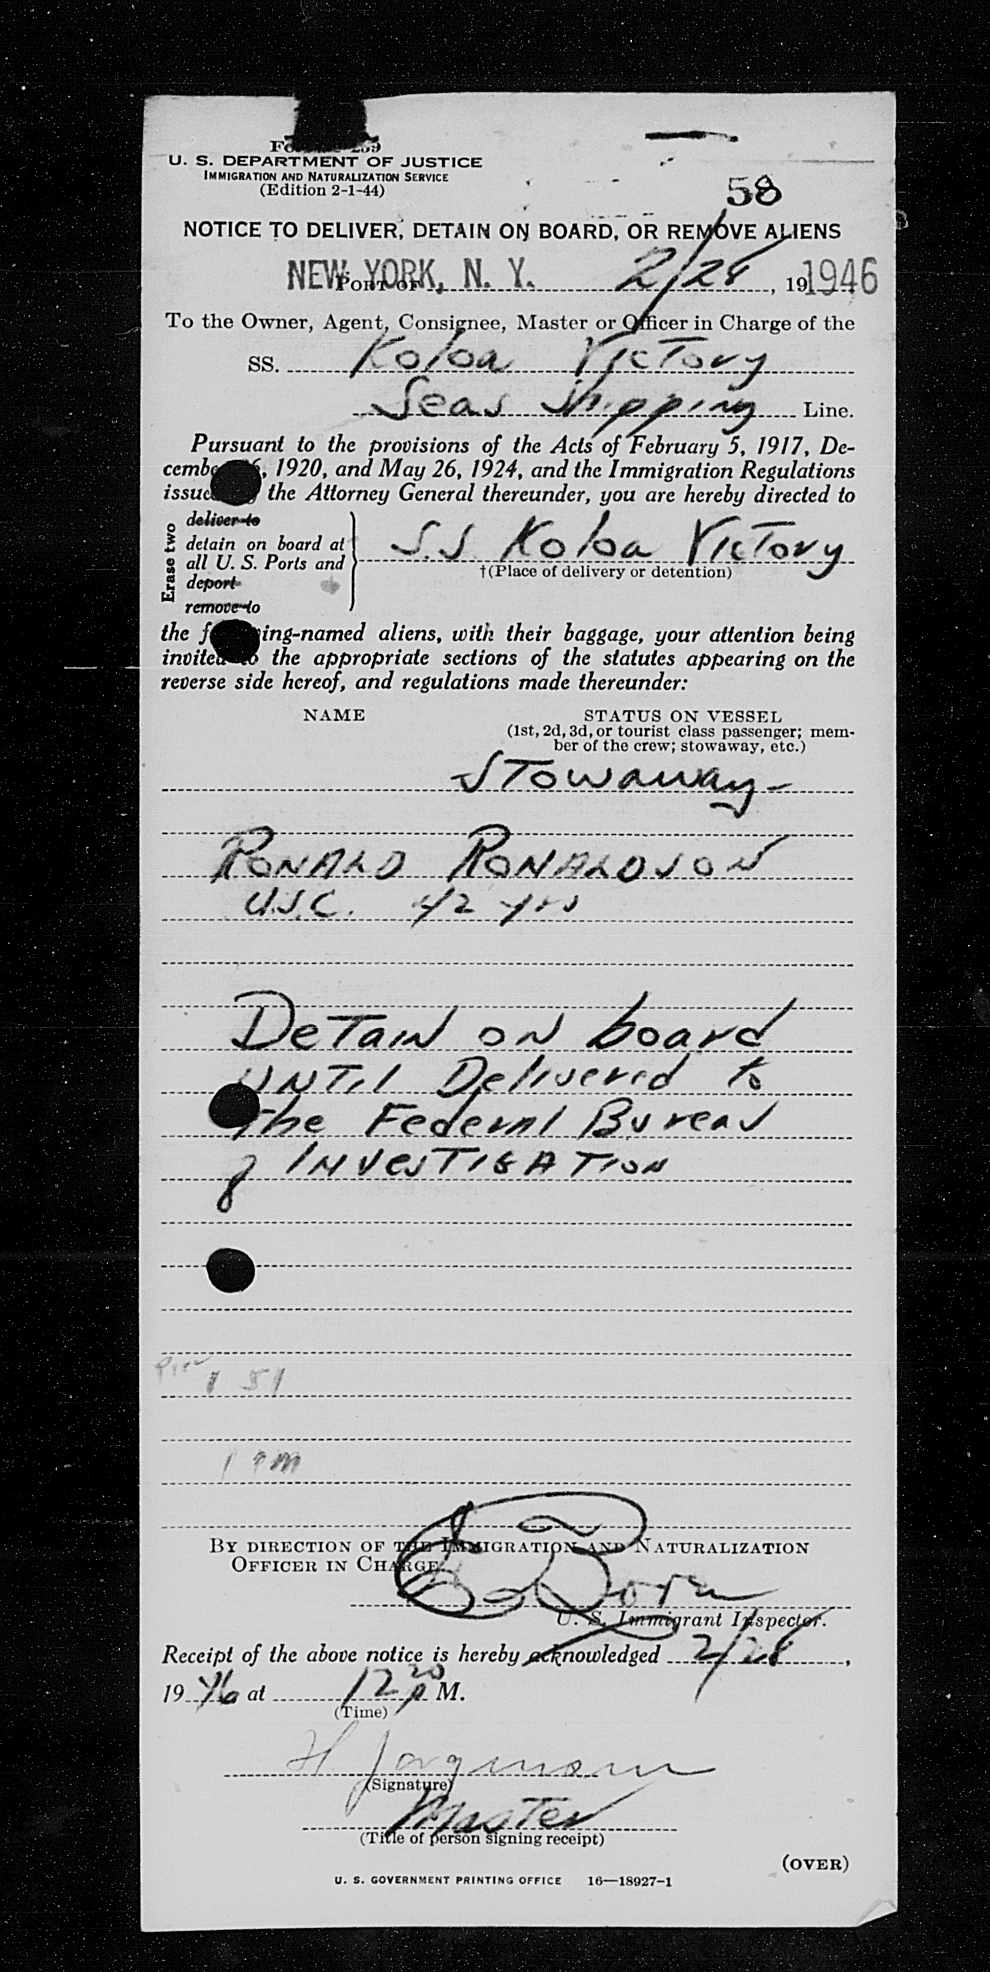 U. S. DEPARTMENT OF JUSTICE
IMMIGRATION AND NATURALIZATION SERVICE
(Edition 2-1-44)
58
NOTICE TO DELIVER, DETAIN ON BOARD, OR REMOVE ALIENS
NEW YORK, N. Y. PORT OF 2/28, 19 1946
To the Owner, Agent, Consignee, Master or Officer in Charge of the
SS. Koloa Victory
Seas Shipping Line.
Pursuant to the provisions of the Acts of February 5, 1917, De-
cember 26, 1920, and May 26, 1924, and the Immigration Regulations
issued by the Attorney General thereunder, you are hereby directed to
Erase two
deliver to
detain on board at
all U. S. Ports and
deport
remove to
S.S. Koloa Victory
†(Place of delivery or detention)
the following-named aliens, with their baggage, your attention being
invited to the appropriate sections of the statutes appearing on the
reverse side hereof, and regulations made thereunder:
NAME STATUS ON VESSEL
(1st, 2d, 3d, or tourist class passenger; mem-
ber of the crew; stowaway, etc.)
Stowaway-
RONALD RONALDSON
U.S.C. 42 yrs
Detain on board
until Delivered to
the Federal Bureau
of Investigation
1 PM
BY DIRECTION OF THE IMMIGRATION AND NATURALIZATION
OFFICER IN CHARGE
U. S. Immigrant Inspector.
Receipt of the above notice is hereby acknowledged 2/28,
19 46 at 12 20 P M.
(Time)
(Signature)
Master
(Title of person signing receipt)
(OVER)
U. S. GOVERNMENT PRINTING OFFICE 16—18927-1